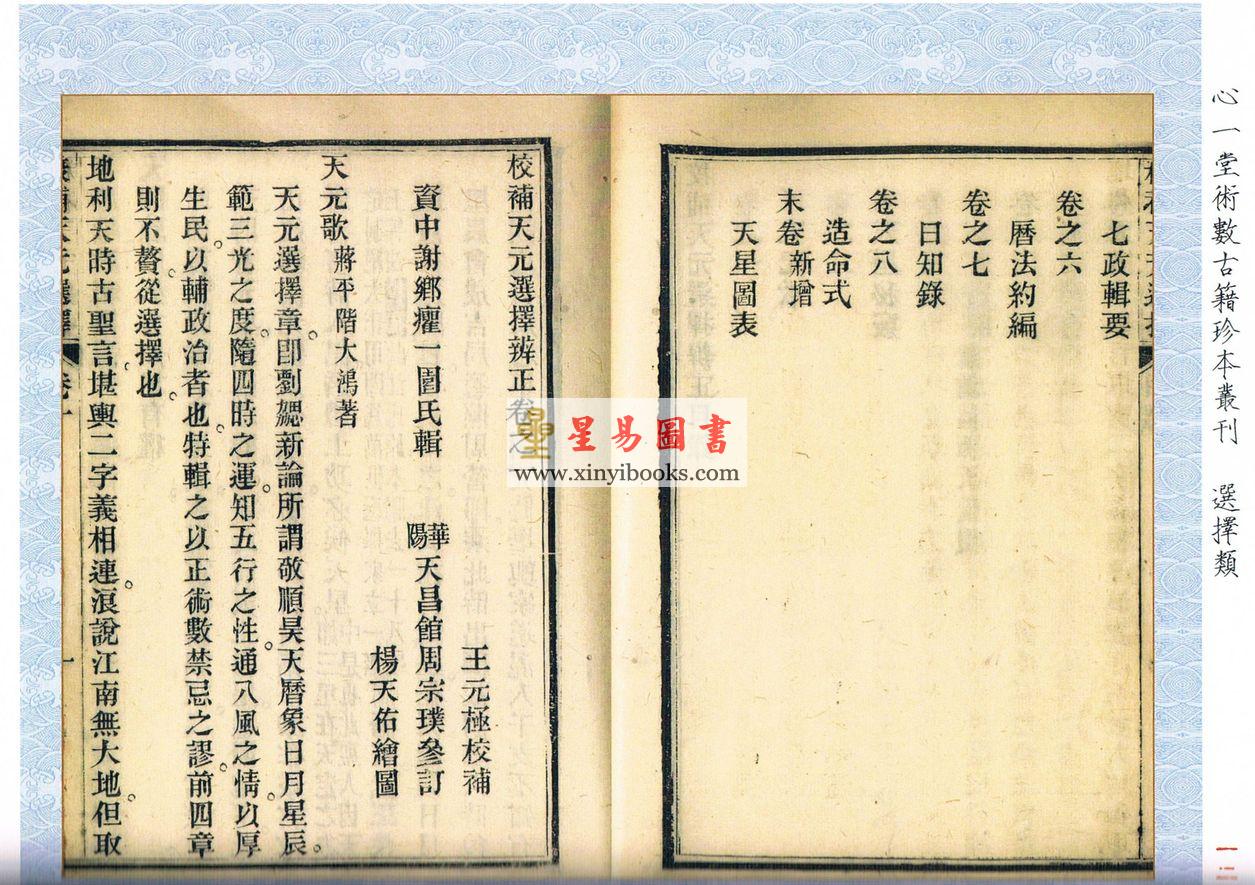 心一堂術數古籍珍本叢刊 選擇類
七政輯要
卷之六
曆法約編
卷之七
日知錄
卷之八
造命式
末卷新增
天星圖表
校補天元選擇辨正卷之一
王元極校補
資中謝鄉癯一圄氏輯 華陽天昌館周宗璞參訂
楊天佑繪圖
天元歌 蔣平階大鴻著
天元選擇章。即劉勰新論所謂敬順昊天曆象日月星辰。
範三光之度。隨四時之運。知五行之性。通八風之情。以厚
生民。以輔政治者也。特輯之以正術數禁忌之謬。前四章
則不贅從選擇也。
地利天時古聖言。堪輿二字義相連。浪說江南無大地。但取
星易圖書
www.xinyibooks.com